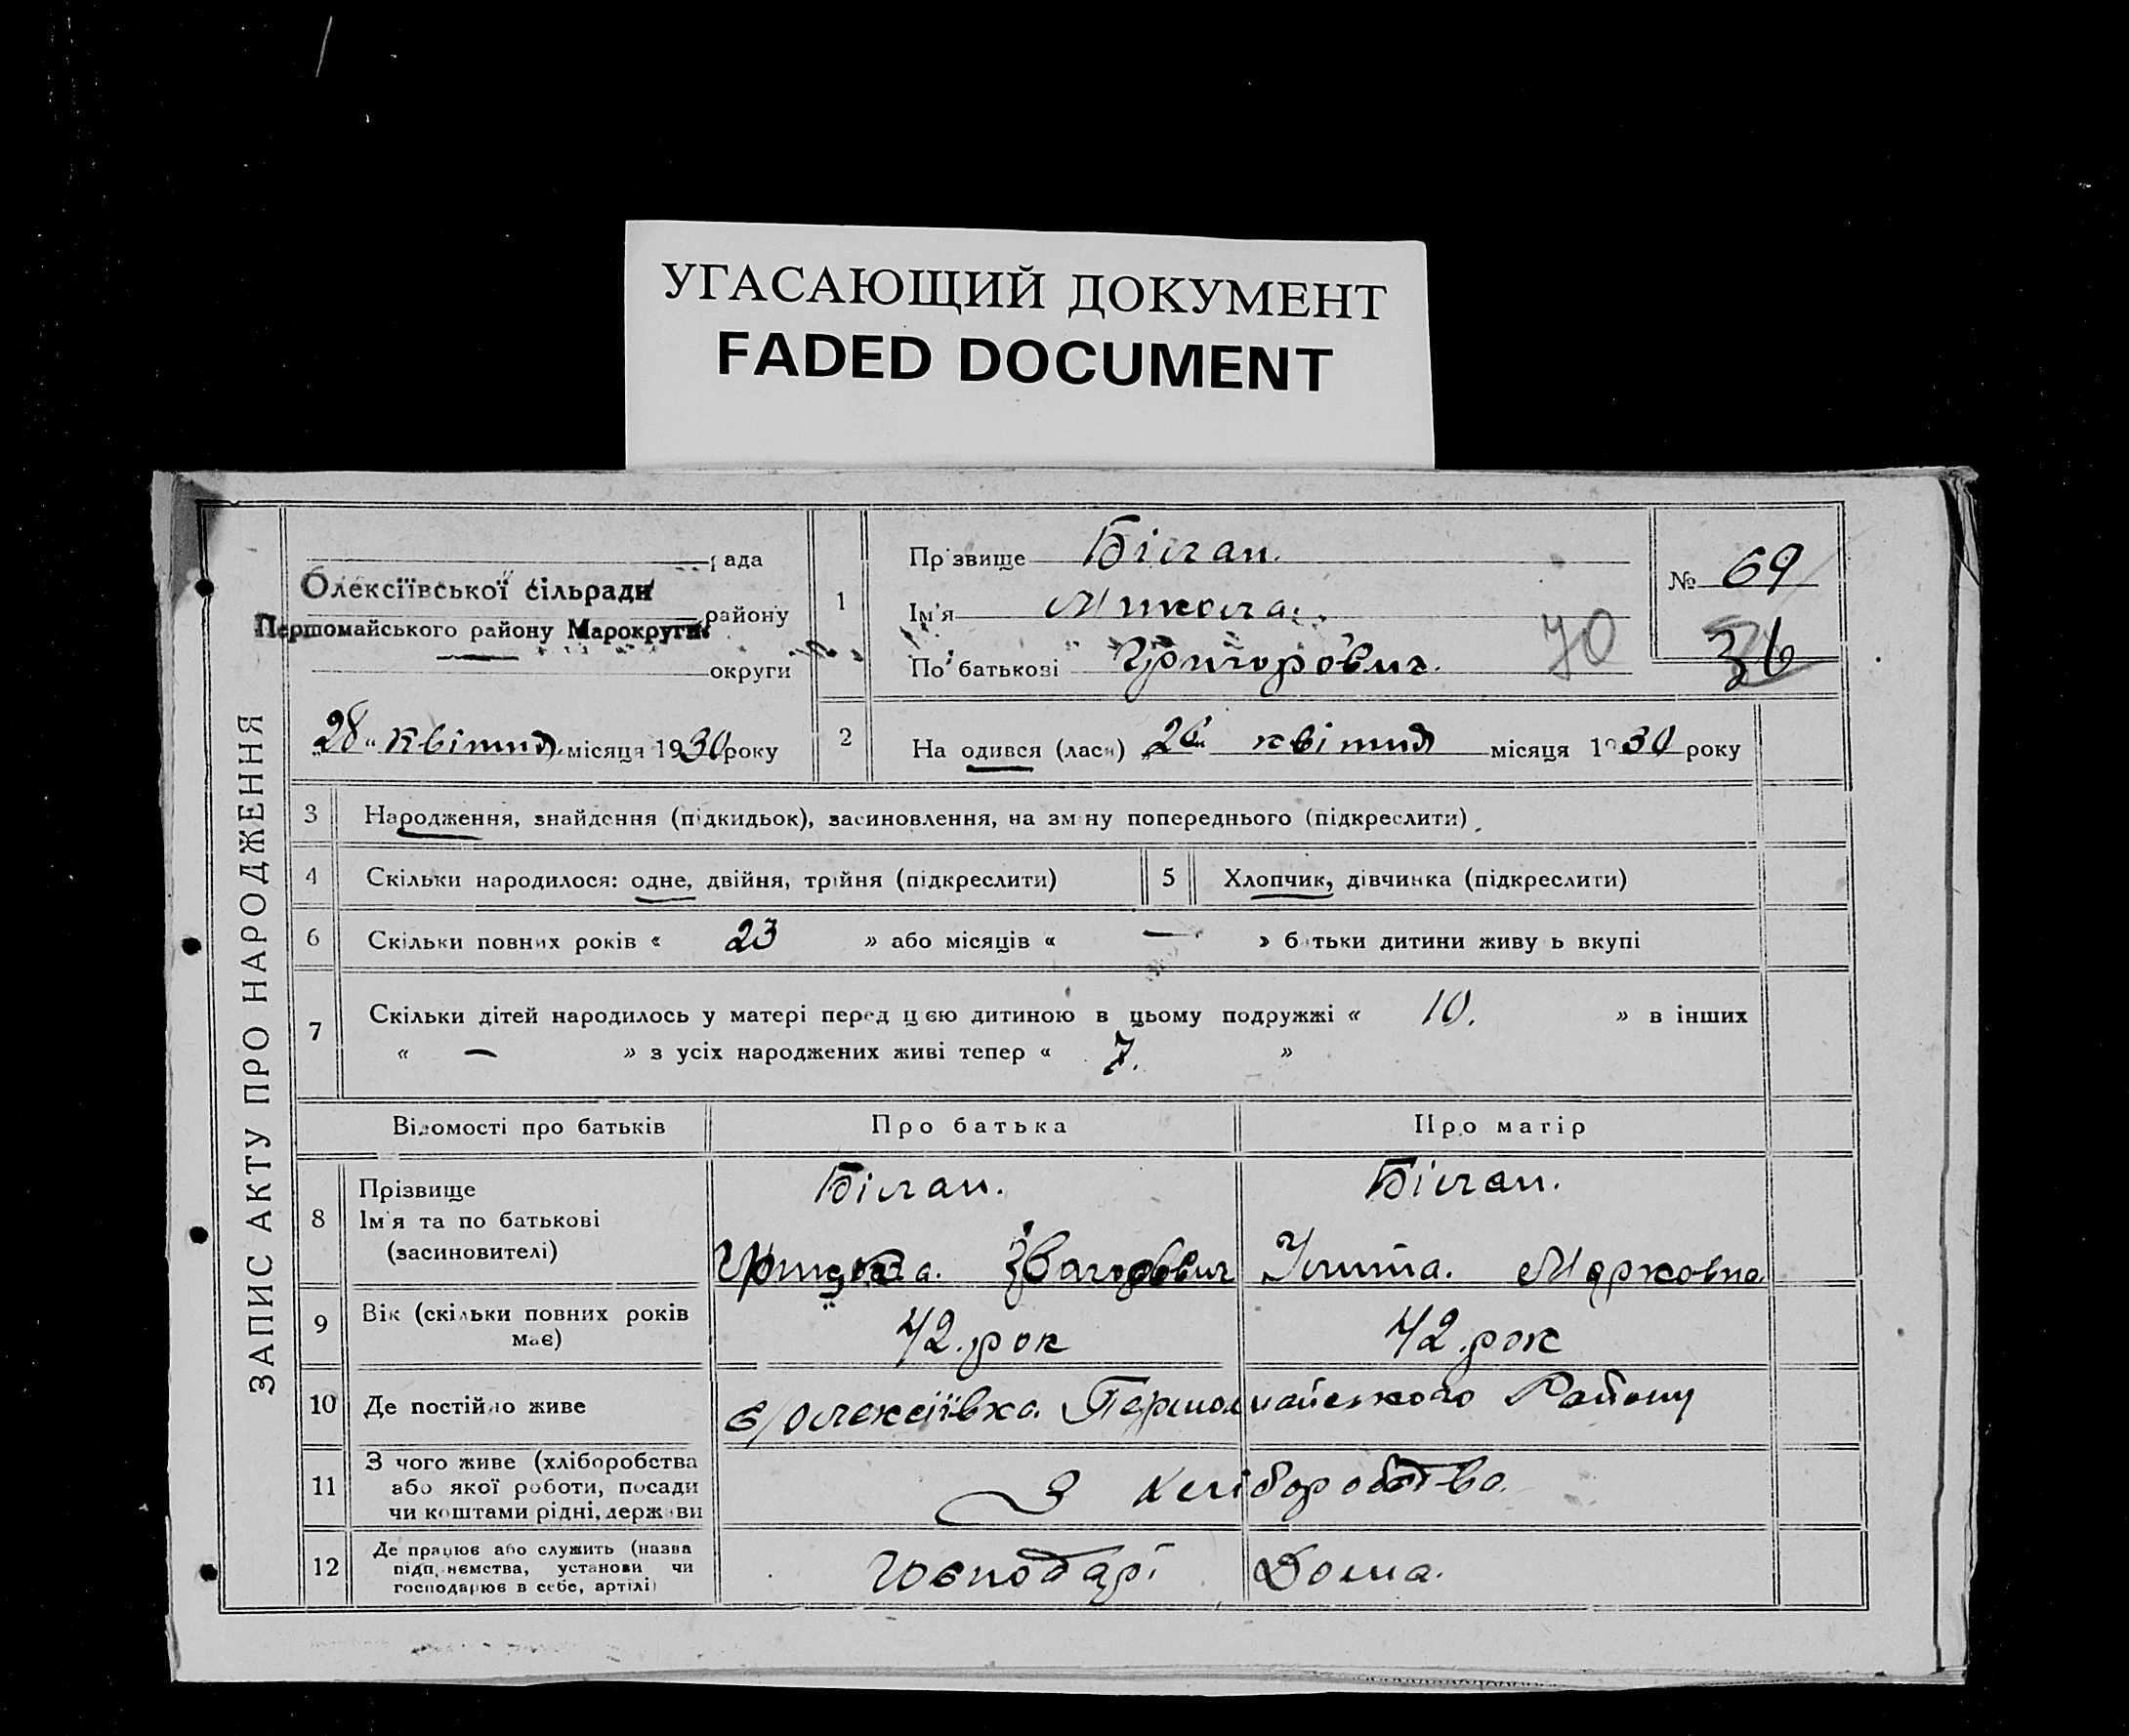 УГАСАЮЩИЙ ДОКУМЕНТ
FADED DOCUMENT
ЗАПИС АКТУ ПРО НАРОДЖЕННЯ
рада
Олексіївської сільради
району
Першомайського району Марокруги
округи
28 квітня місяця 1930 року
1
Прізвище Білан.
Ім'я Микола.
По батькові Григорович.
№ 69
70
36
2 На одився (лася) 26 квітня місяця 1930 року
3 Народження, знайдення (підкидьок), засиновлення, на зміну попереднього (підкреслити)
4 Скільки народилося: одне, двійня, трійня (підкреслити)
5 Хлопчик, дівчинка (підкреслити)
6 Скільки повних років « 23 » або місяців « — » батьки дитини живуть вкупі
7 Скільки дітей народилось у матері перед цією дитиною в цьому подружжі « 10. » в інших
« — » з усіх народжених живі тепер « 7. »
Відомості про батьків Про батька Про матір
8 Прізвище Білан. Білан.
Ім'я та по батькові
(засиновителі) Марковна
9 Вік (скільки повних років 42 рок 42 рок
має)
10 Де постійно живе с/Олексіївка Першомайського Району
11 З чого живе (хліборобства
або якої роботи, посади З хліборобства
чи коштами рідні, держави
12 Де працює або служить (назва
підприємства, установи чи Господарі Дома.
господарює в себе, артілі)